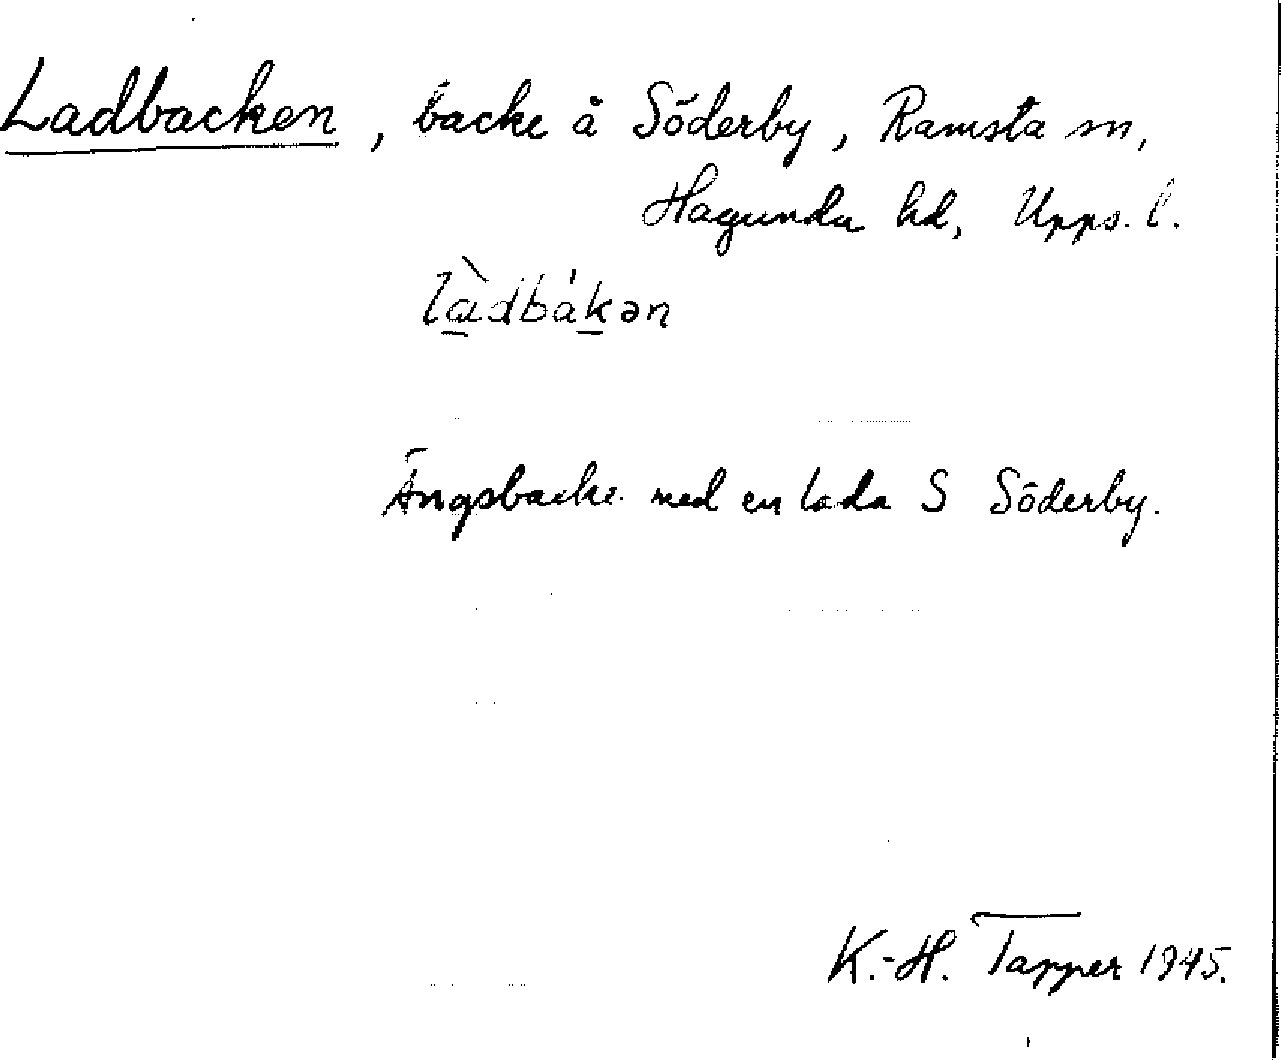 Ladbacken, backe å Söderby, Ramsta sn,
Hagunda hd, Upps. l.
là̱dbák̠ən
Ängsbacke med en lada S Söderby.
K.-H. Tapper 1945.